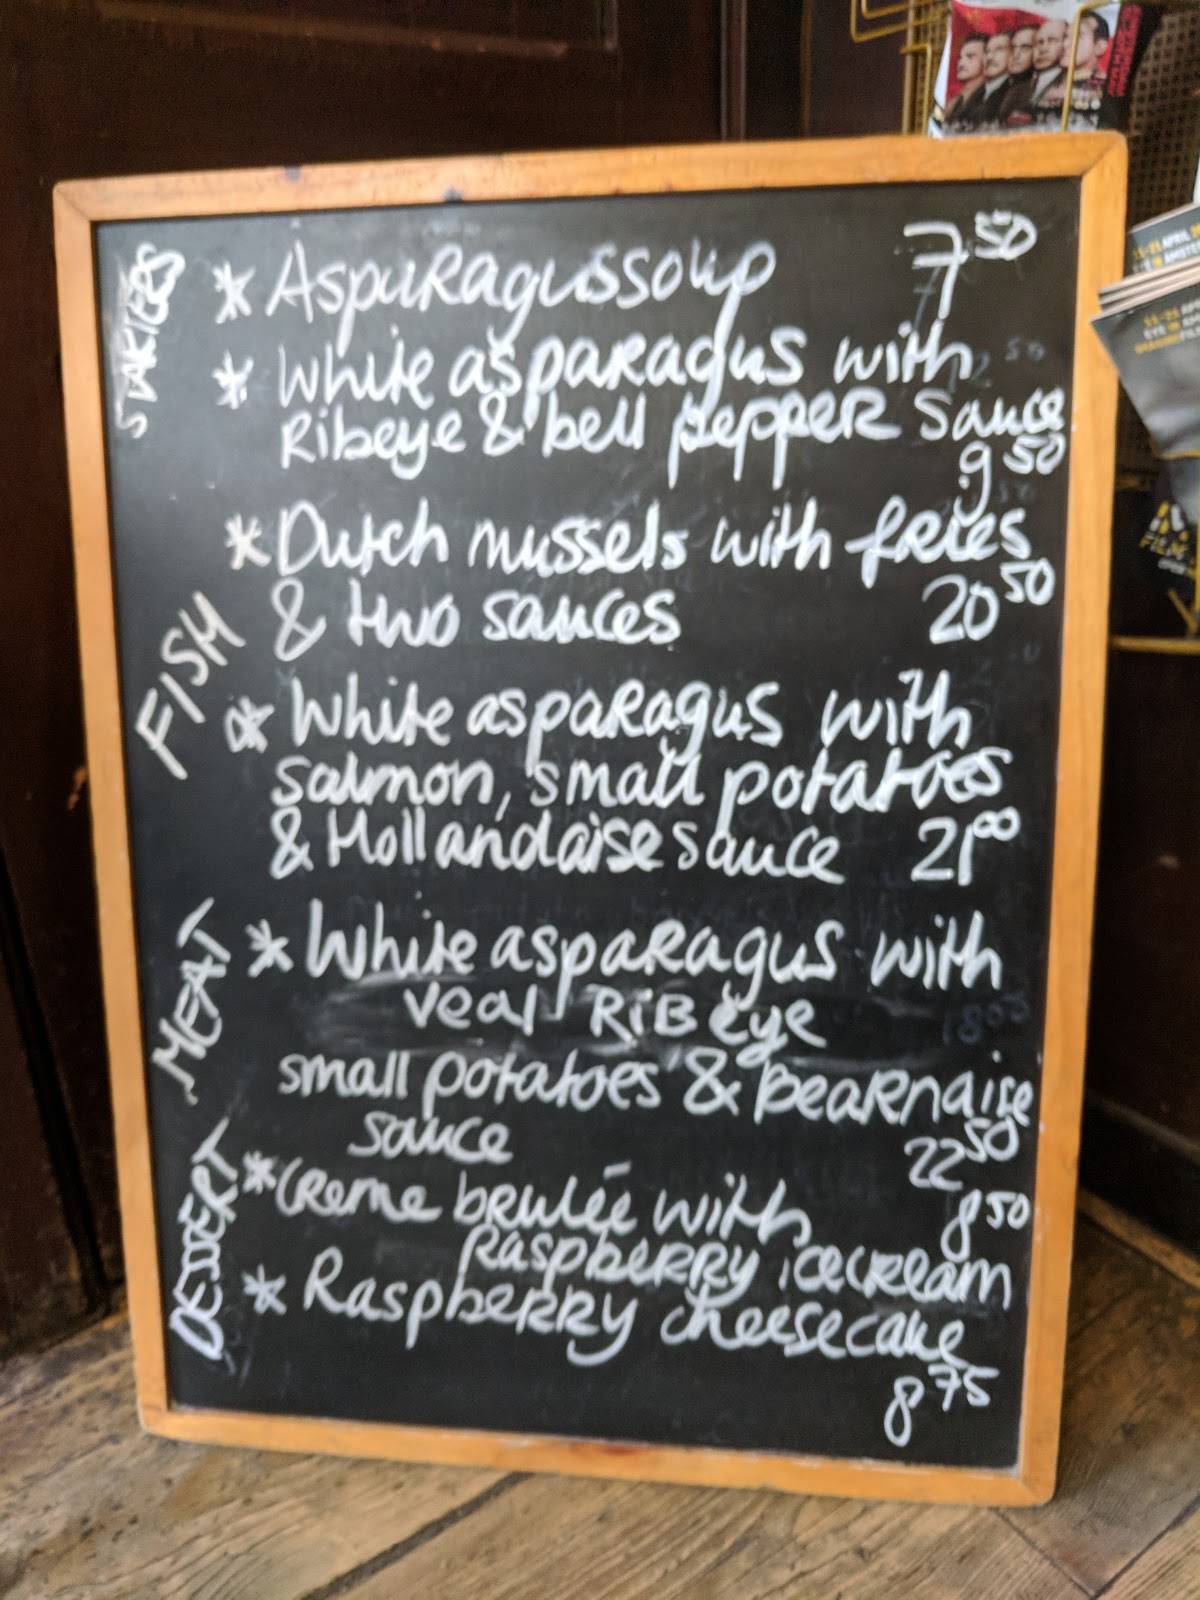 STARTERS
* Asparagussoup 7.50
* White asparagus with
Ribeye & bell pepper sauce
9.50
FISH
* Dutch mussels with fries
& two sauces 20.50
* White asparagus with
salmon, small potatoes
& Hollandaise sauce 21.00
MEAT
* White asparagus with
veal RiB eye
small potatoes & Bearnaise
sauce 22.50
DESSERT
* Creme brulée with 8.50
Raspberry icecream
* Raspberry cheesecake
8.75